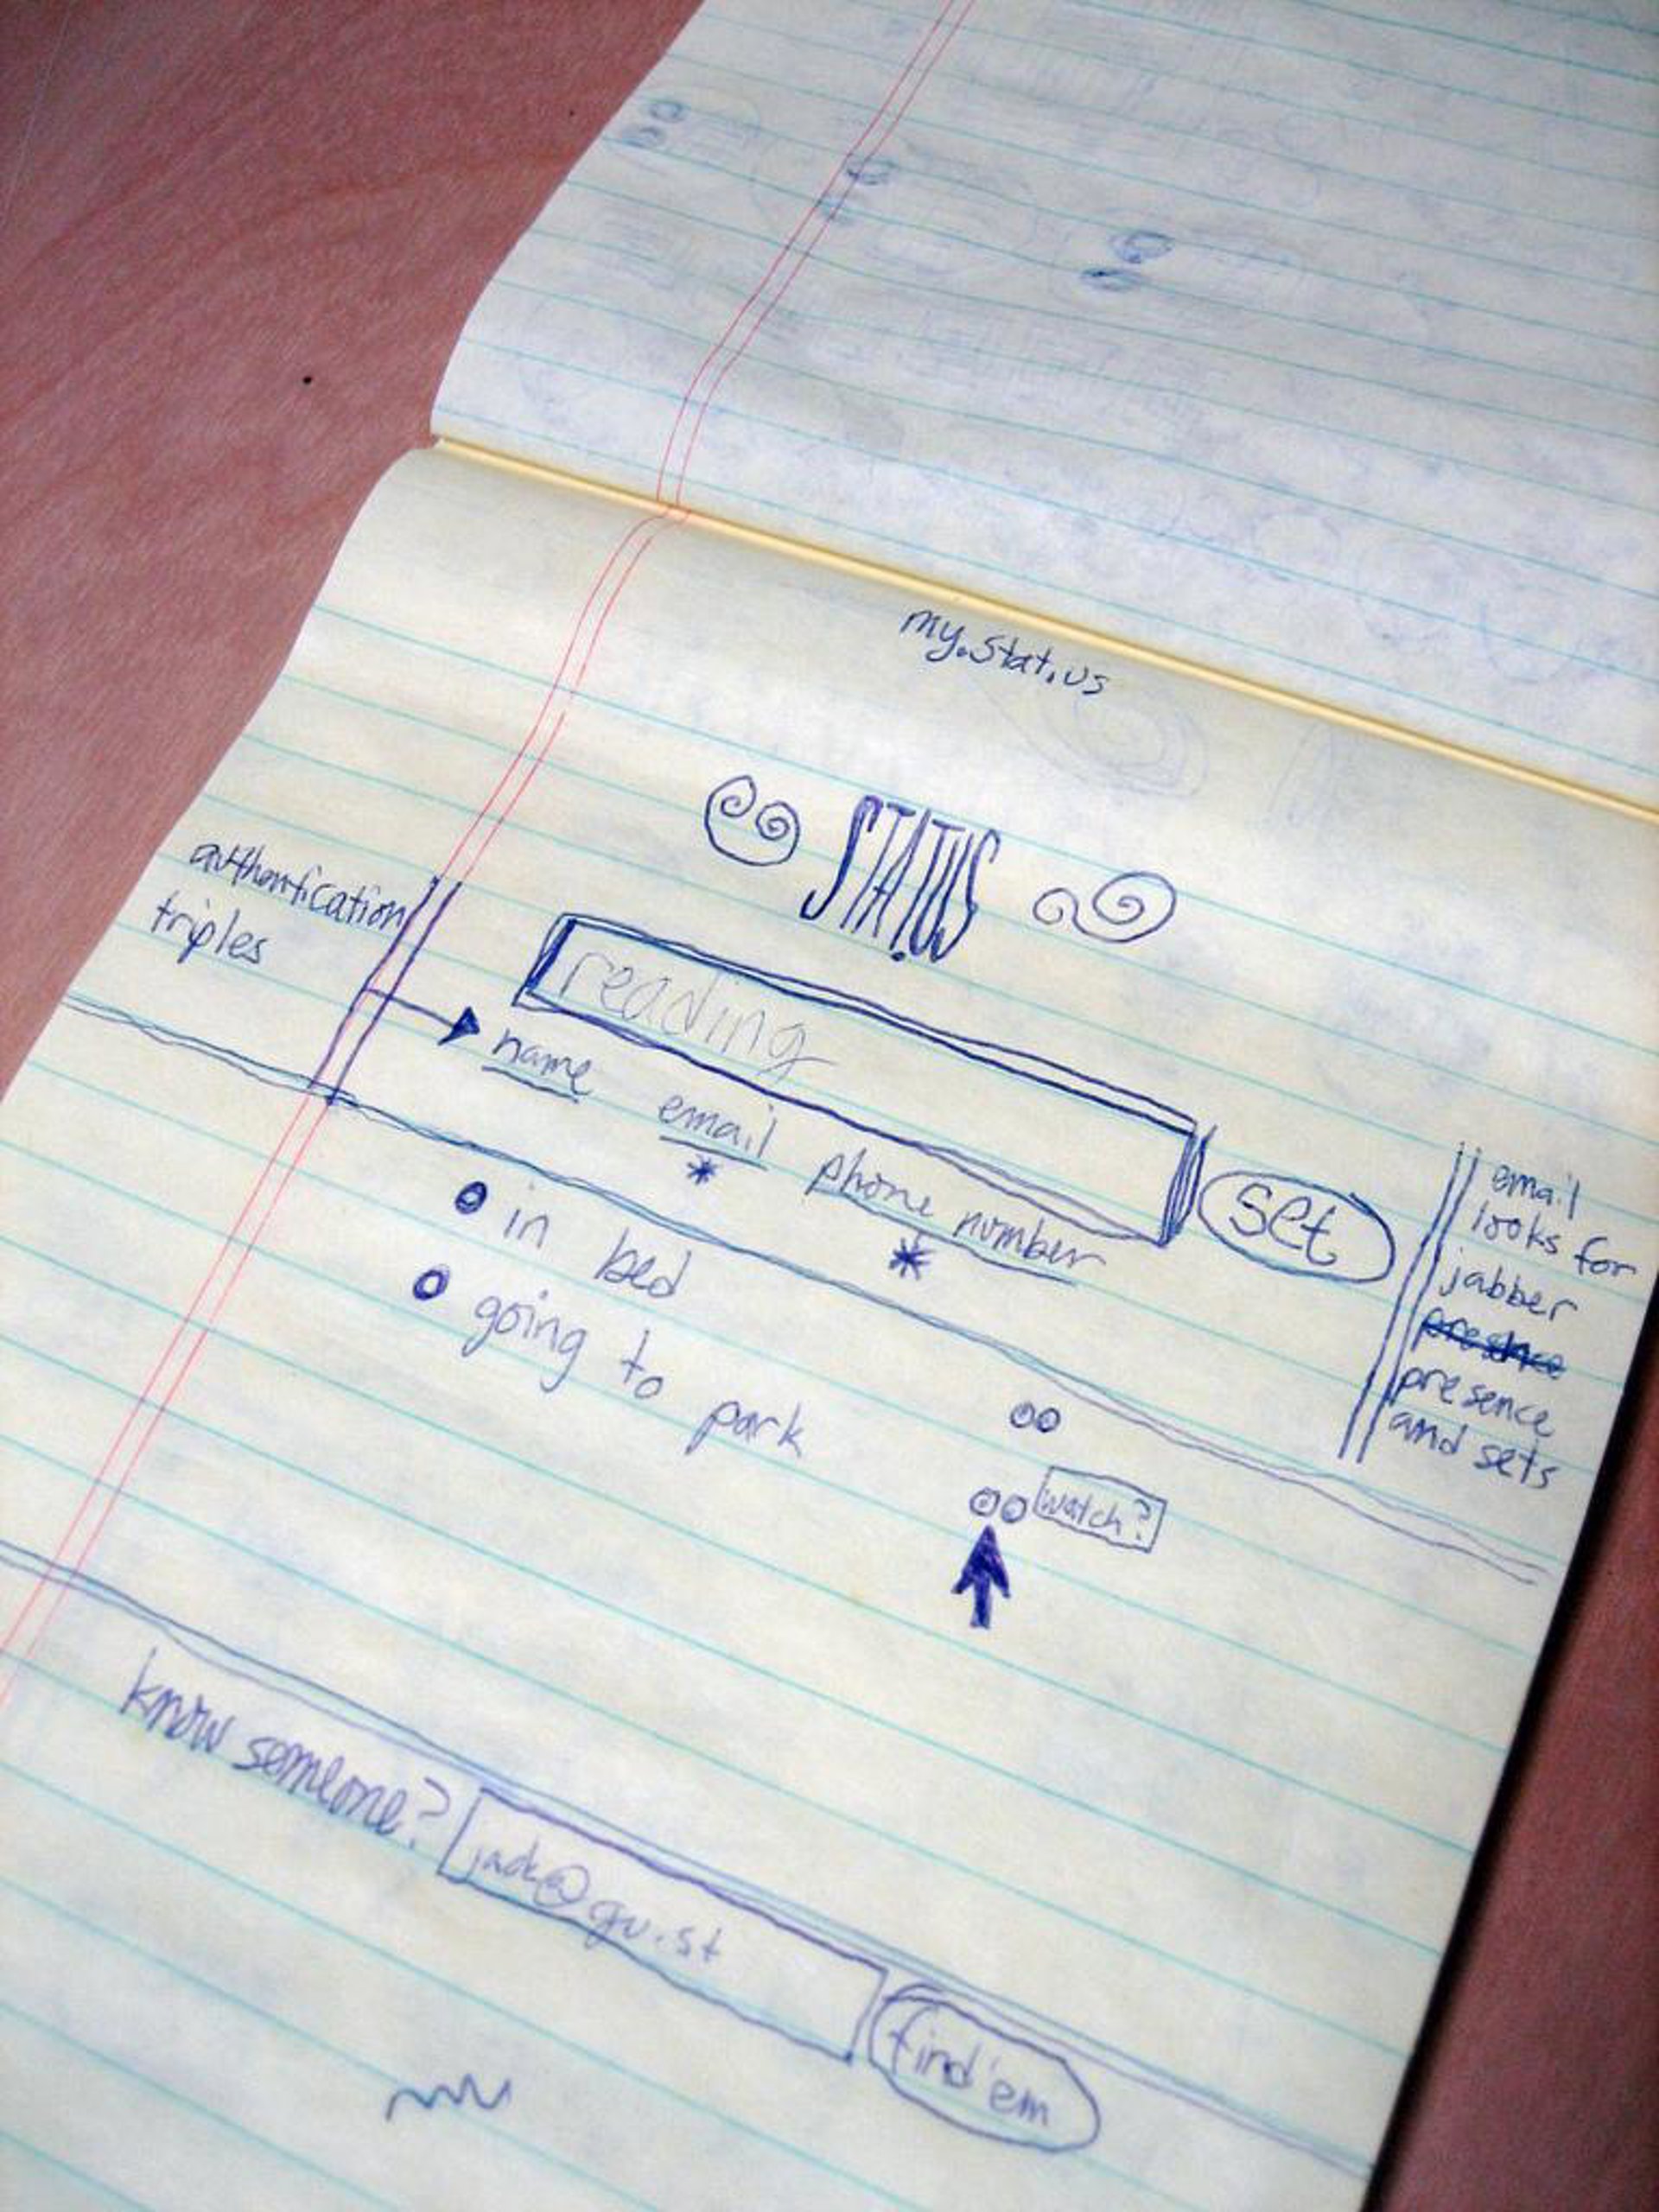 my.stat.us
STAT.US
authentication
triples
reading
name email phone number
* *
set
email
looks for
jabber
presence
presence
and sets
in bed
going to park
watch?
know someone? jack@gu.st find'em